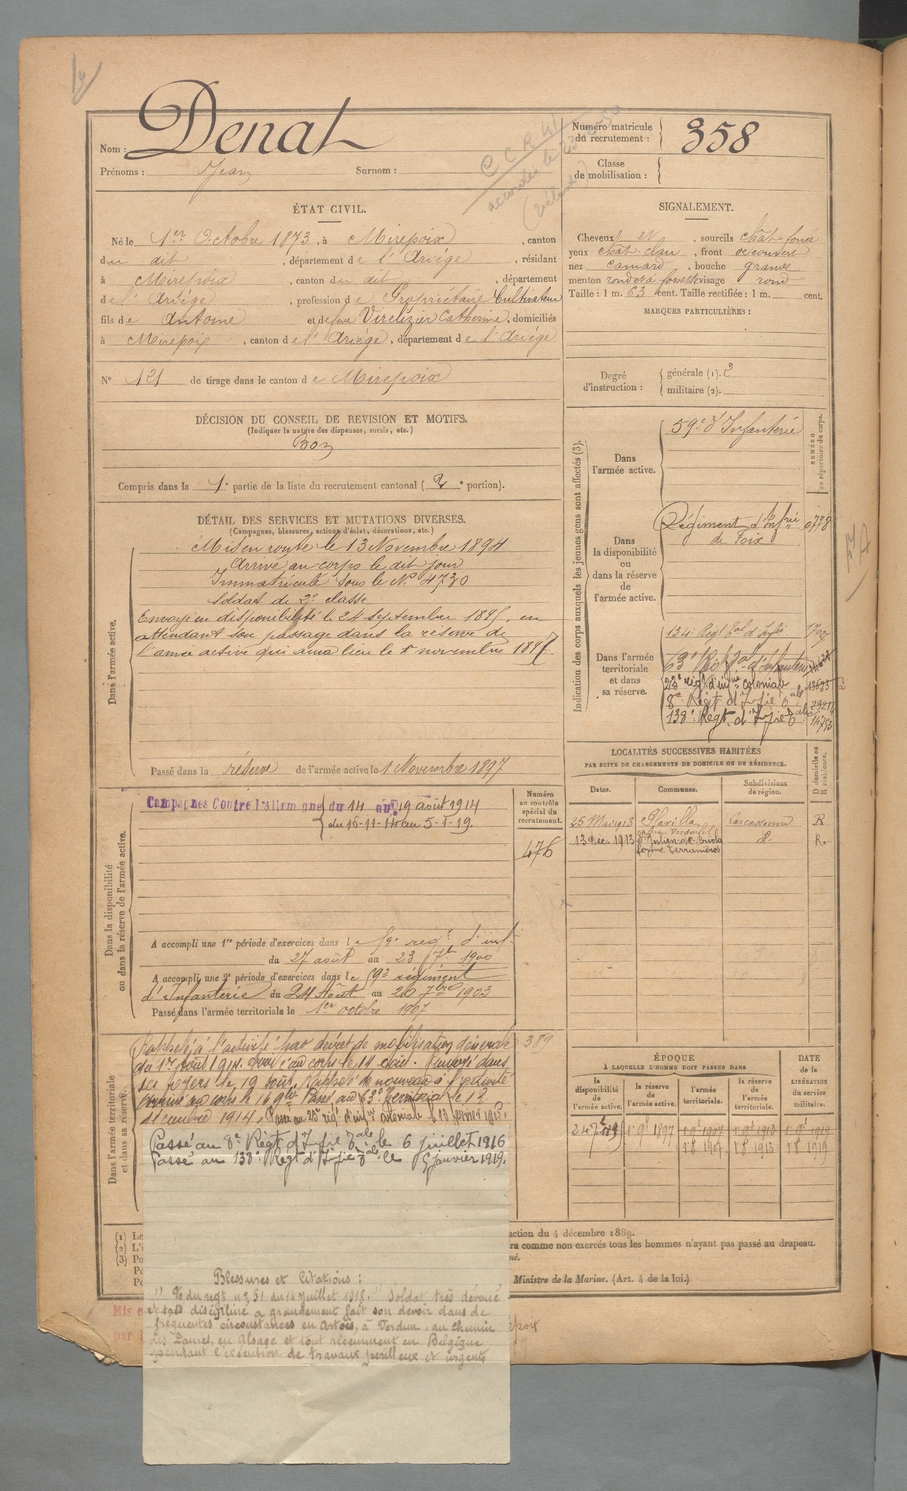 Nom : Denat
Prénoms : Jean Surnom :
Numéro matricule du recrutement : 358
Classe de mobilisation :
C.C.R. 41
ÉTAT CIVIL.
Né le 1er Octobre 1873, à Mirepoix, canton
du dit, département de l'Ariége, résidant
à Mirepoix, canton du dit, département
de l'Ariége, profession de Propriétaire Cultivateur
fils de Antoine et de feue Virelizier Catherine, domiciliés
à Mirepoix, canton de l'Ariége, département de l'Ariége
N° 121 de tirage dans le canton de Mirepoix
DÉCISION DU CONSEIL DE REVISION ET MOTIFS.
(Indiquer la nature des dispenses, sursis, etc.)
Bon
Compris dans la 1e partie de la liste du recrutement cantonal (2e portion).
SIGNALEMENT.
Cheveux et, sourcils chât-foncé
yeux chât-clair, front découvert
nez camard, bouche grande
menton rond et à fossette visage rond
Taille : 1 m. 63 cent. Taille rectifiée : 1 m. cent.
MARQUES PARTICULIÈRES :
Degré d'instruction : générale (1). 2
militaire (2).
DÉTAIL DES SERVICES ET MUTATIONS DIVERSES.
(Campagnes, blessures, actions d'éclat, décorations, etc.)
Dans l'armée active.
Mis en route le 13 Novembre 1894
Arrivé au corps le dit jour
Immatriculé sous le N° 4730
Soldat de 2e classe
Envoyé en disponibilité le 24 septembre 1895, en
attendant son passage dans la réserve de
l'armée active qui aura lieu le 1er novembre 1897.
Passé dans la réserve de l'armée active le 1 Novembre 1897
Indication des corps auxquels les jeunes gens sont affectés (3).
NUMÉRO au répertoire du corps.
Dans l'armée active.
59e d'Infanterie
Dans la disponibilité ou dans la réserve de l'armée active.
Régiment d'Infrie 0778
de Foix
Dans l'armée territoriale et dans sa réserve.
134e Régt
63e Rég d'Infanterie
23e régt d'infrie coloniale
8e Régt d'Infie
138e Régt d'Infie
Dans la disponibilité ou dans la réserve de l'armée active.
Campagnes Contre l'Allemagne du 14 au 19 août 1914
du 16-11-14 au 5-1-19.
Numéro au contrôle spécial du recrutement.
476
A accompli une 1re période d'exercices dans le 59e régt d'inf.
du 27 août au 23 7bre 1900
A accompli une 2e période d'exercices dans le 59e régiment
d'Infanterie du 24 Août au 20 7bre 1903
Passé dans l'armée territoriale le 1er octobre 1907
LOCALITÉS SUCCESSIVES HABITÉES
PAR SUITE DE CHANGEMENTS DE DOMICILE OU DE RÉSIDENCE.
Dates. Communes. Subdivisions de région. D domicile ou R résidence.
Carcassonne R
13 déc 1913 St Julien-de-Briola R.
Dans l'armée territoriale et dans sa réserve.
Rappelé à l'activité par décret de mobilisation générale
du 1er Août 1914. Arrivé au corps le 14 dud. Renvoyé dans
ses foyers le 19 août. Rappelé de nouveau à l'activité
Arrivé au corps le 16 9bre Passé au 63e Territorial le 13
décembre 1914. Passé au 23e régt d'infrie coloniale le 13
Passé au 8e Régt d'Infie le 6 juillet 1916
Passé au 138e Régt d'Infie le 5 janvier 1919.
389
ÉPOQUE
À LAQUELLE L'HOMME DOIT PASSER DANS
DATE DE LA LIBÉRATION du service militaire.
la disponibilité de l'armée active. la réserve de l'armée active. l'armée territoriale. la réserve de l'armée territoriale.
1897 1907 1913 1919
1907 1913 1919
(1) Le
(2) L'i
(3) Po
ction du 4 décembre 1889.
ra comme non exercés tous les hommes n'ayant pas passé au drapeau.
Ministre de la Marine. (Art. 4 de la loi.)
Blessures et Citations :
du régt n° 51 du 14 juillet 1918. "Soldat très dévoué
et très discipliné a grandement fait son devoir dans de
fréquentes circonstances en Artois, à Verdun, au chemin
des Dames, en Alsace et tout récemment en Belgique
pendant l'exécution de travaux périlleux et urgents